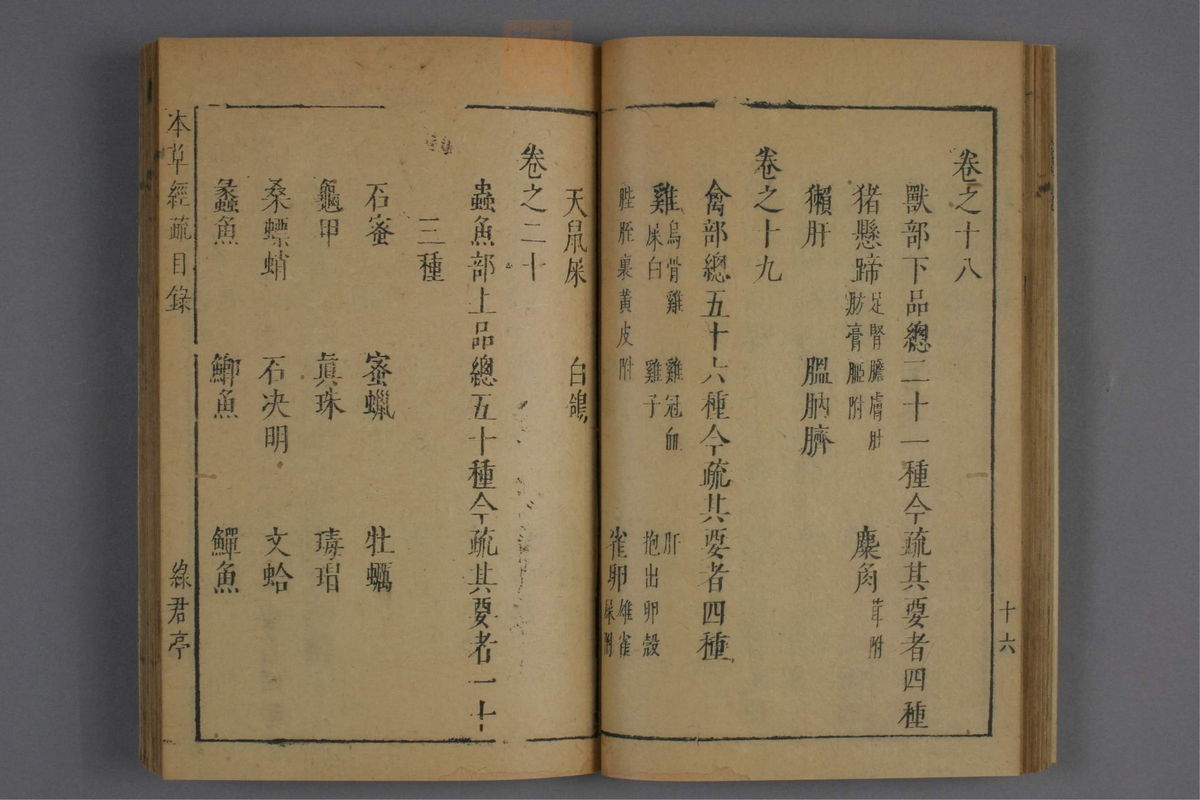 卷之十八
獸部下品總二十一種今疏其要者四種
猪懸蹄 足腎膽膚肚 肪膏䐈附 麋角 茸附
獺肝 膃肭臍
卷之十九
禽部總五十六種今疏其要者四種
雞 烏骨雞 雞冠血 肝 屎白 雞子 抱出卵殼
䏶胵裏黃皮附 雀卵 雄雀屎附
天鼠屎 白鴿
卷之二十
蟲魚部上品總五十種今疏其要者一十
三種
石蜜 蜜蠟 牡蠣
龜甲 真珠 瑇瑁
桑螵蛸 石決明 文蛤
蠡魚 鯽魚 鱓魚
本草經疏目錄
綠君亭
十六